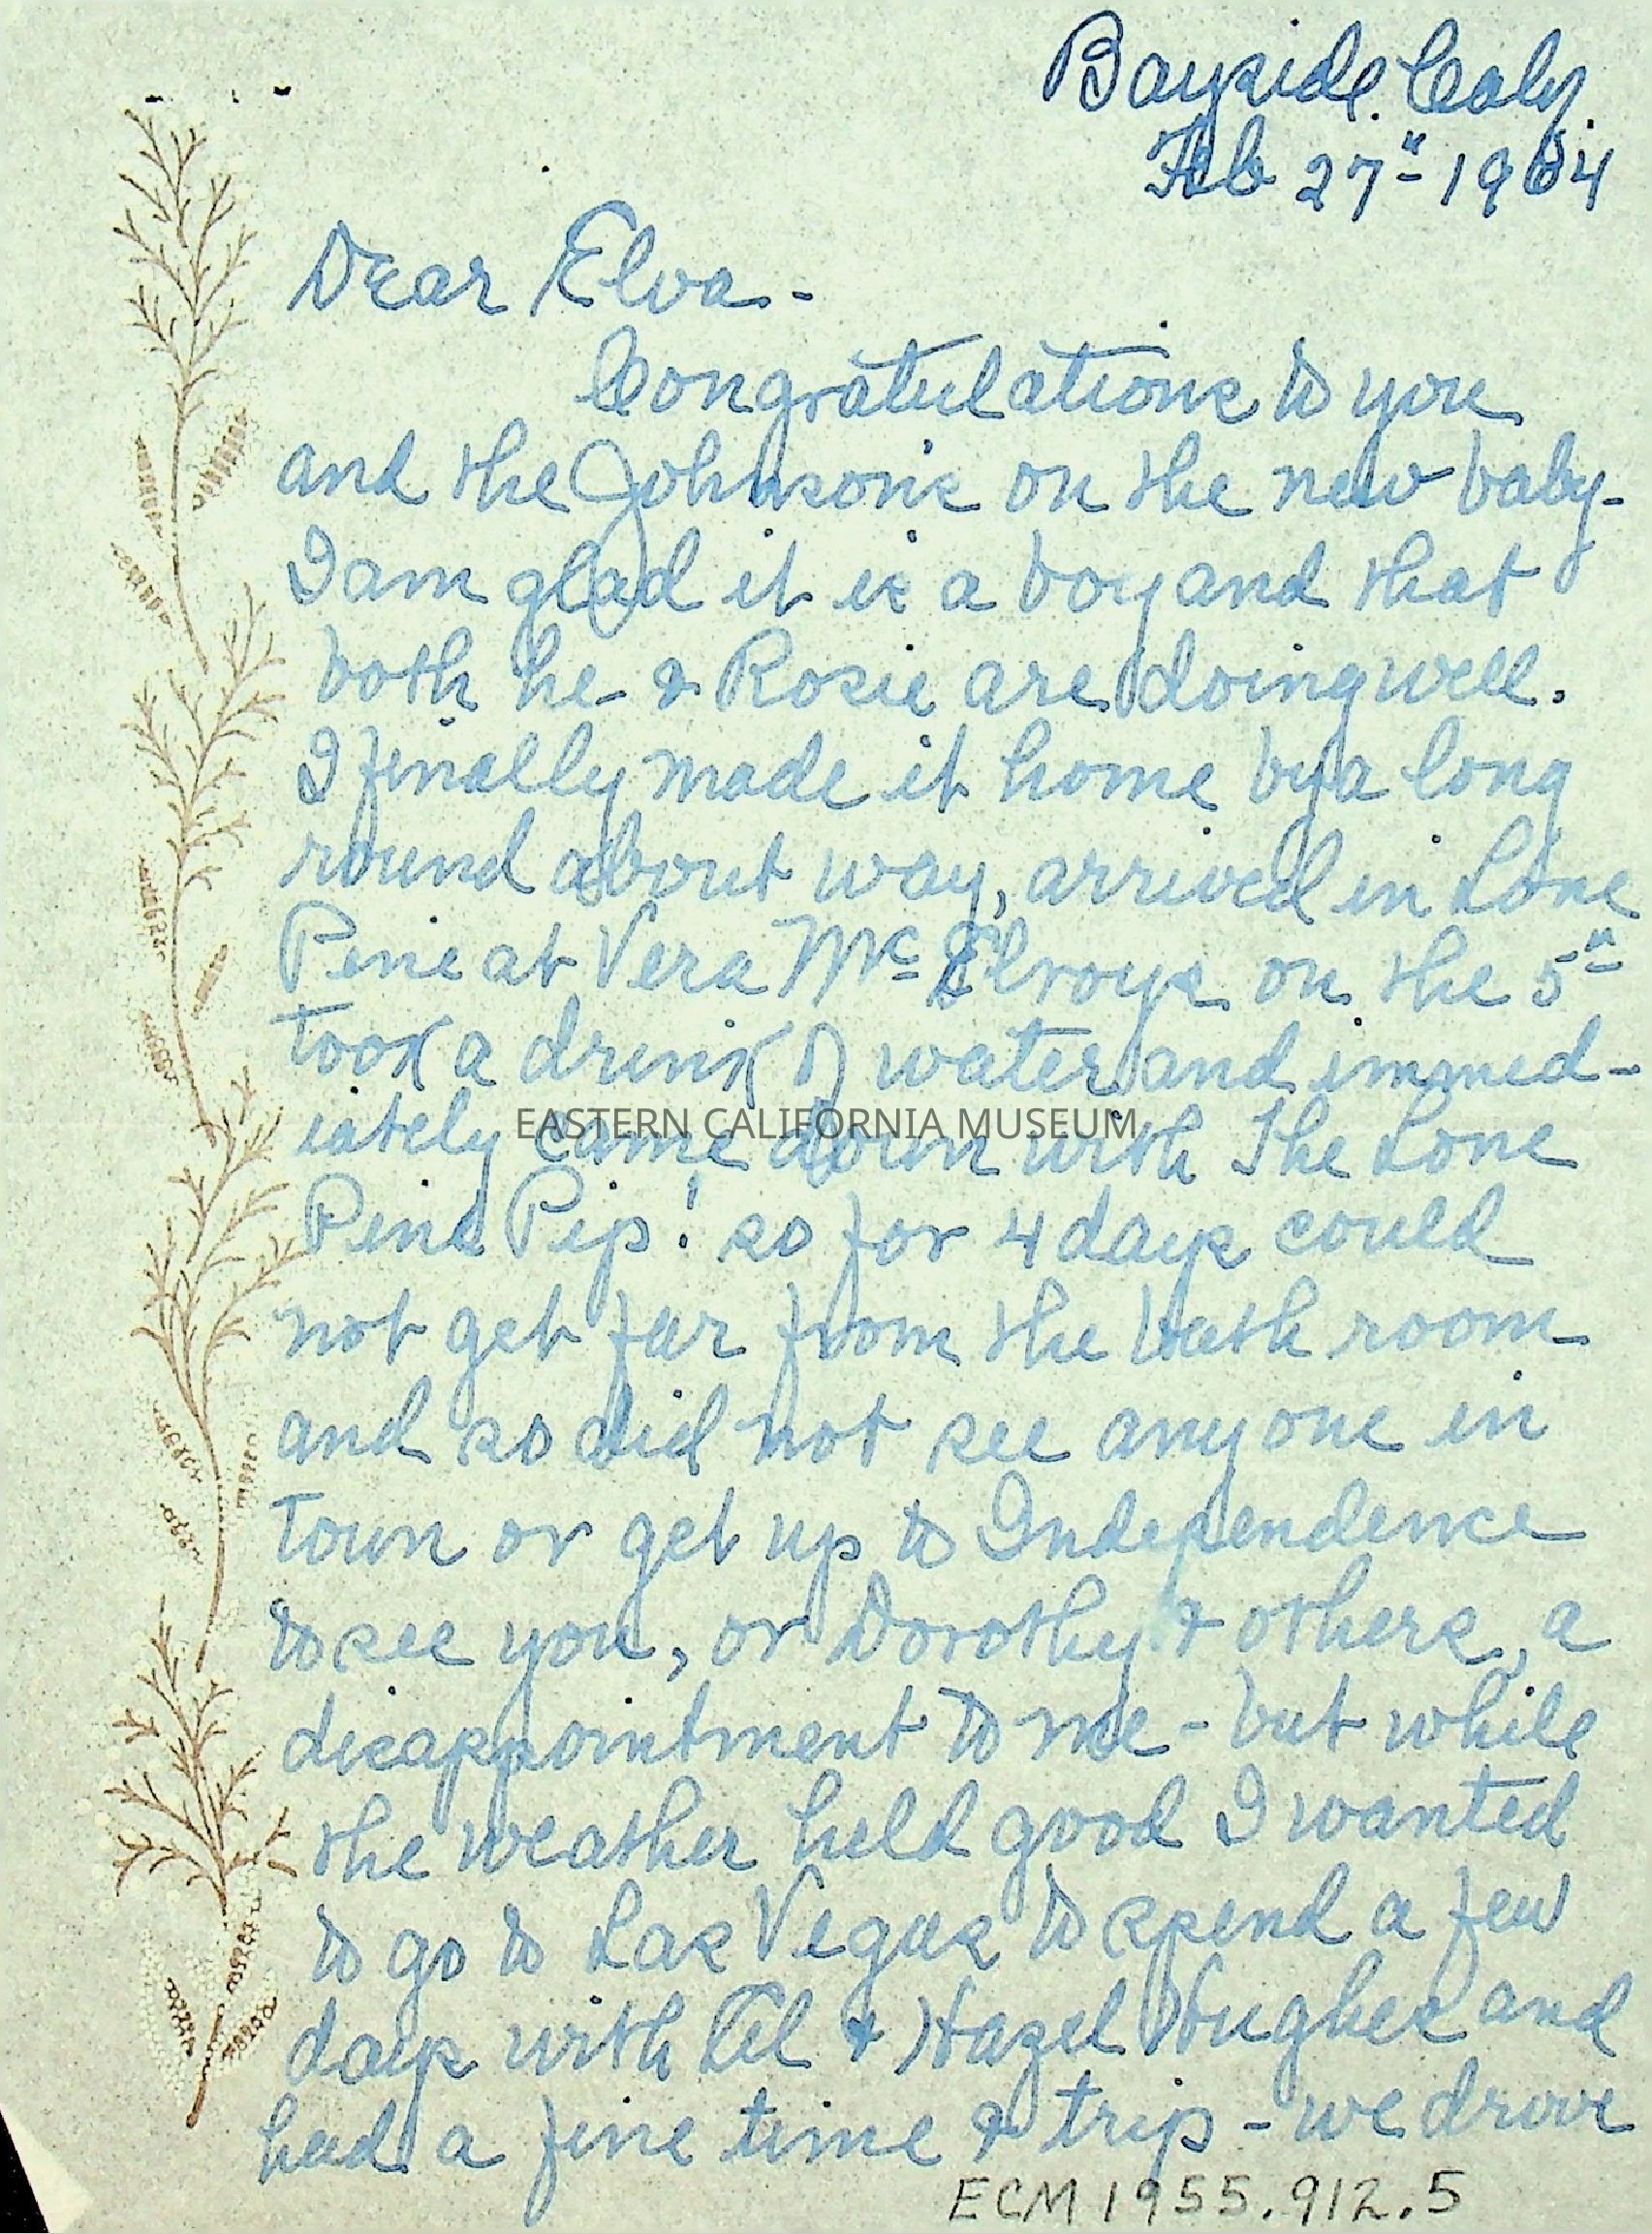 Bayside. Calif.
Feb 27" 1964
Dear Elva -
Congratulations to you
and the Johnson's on the new baby -
I am glad it is a boy and that
both he & Rosie are doing well.
I finally made it home by a long
round about way, arrived in Lone
Pine at Vera McElroys on the 5"
took a drink of water and immed-
iately came down with The Lone
EASTERN CALIFORNIA MUSEUM
Pine Pip! so for 4 days could
not get far from the bath room
and so did not see any one in
Town or get up to Independence
to see you, or Dorothy & others, a
disappointment to me - but while
the weather held good I wanted
to go to Las Vegas to spend a few
days with & Hazel Hughes and
had a fine time & trip - we drove
ECM 1955.912.5